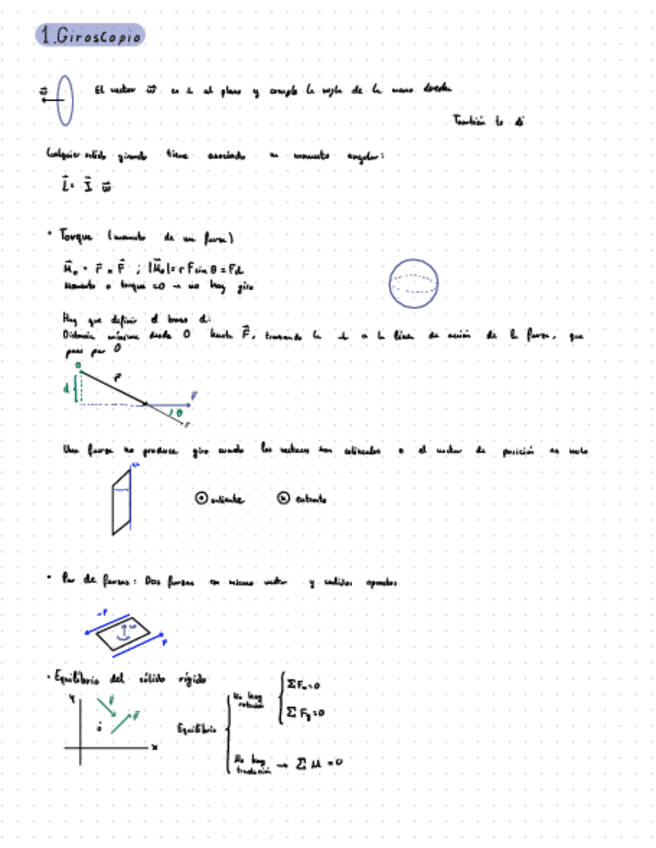 1. Giroscopio
w⃗ El vector w⃗ es ⊥ al plano y cumple la regla de la mano derecha
También lo
Cualquier sólido girando tiene asociado un momento angular:
L⃗ = I⃗ w⃗
• Torque (momento de una fuerza)
M⃗₀ = r⃗ x F⃗ ; |M⃗₀| = r F sin θ = Fd
Momento o torque = 0 → no hay giro
Hay que definir el brazo d:
Distancia mínima desde O hasta F⃗, trazando la ⊥ a la línea de acción de la fuerza, que
pasa por O
O
r⃗
d
F⃗
θ
Una fuerza no produce giro cuando los vectores son colineales o el vector de posición es nulo
saliente entrante
• Par de fuerzas: Dos fuerzas con mismo vector y sentidos opuestos
-F
w
F
• Equilibrio del sólido rígido
Y
F
F
O
x
Equilibrio
No hay rotación
ΣFx=0
ΣFy=0
No hay traslación → ΣM=0